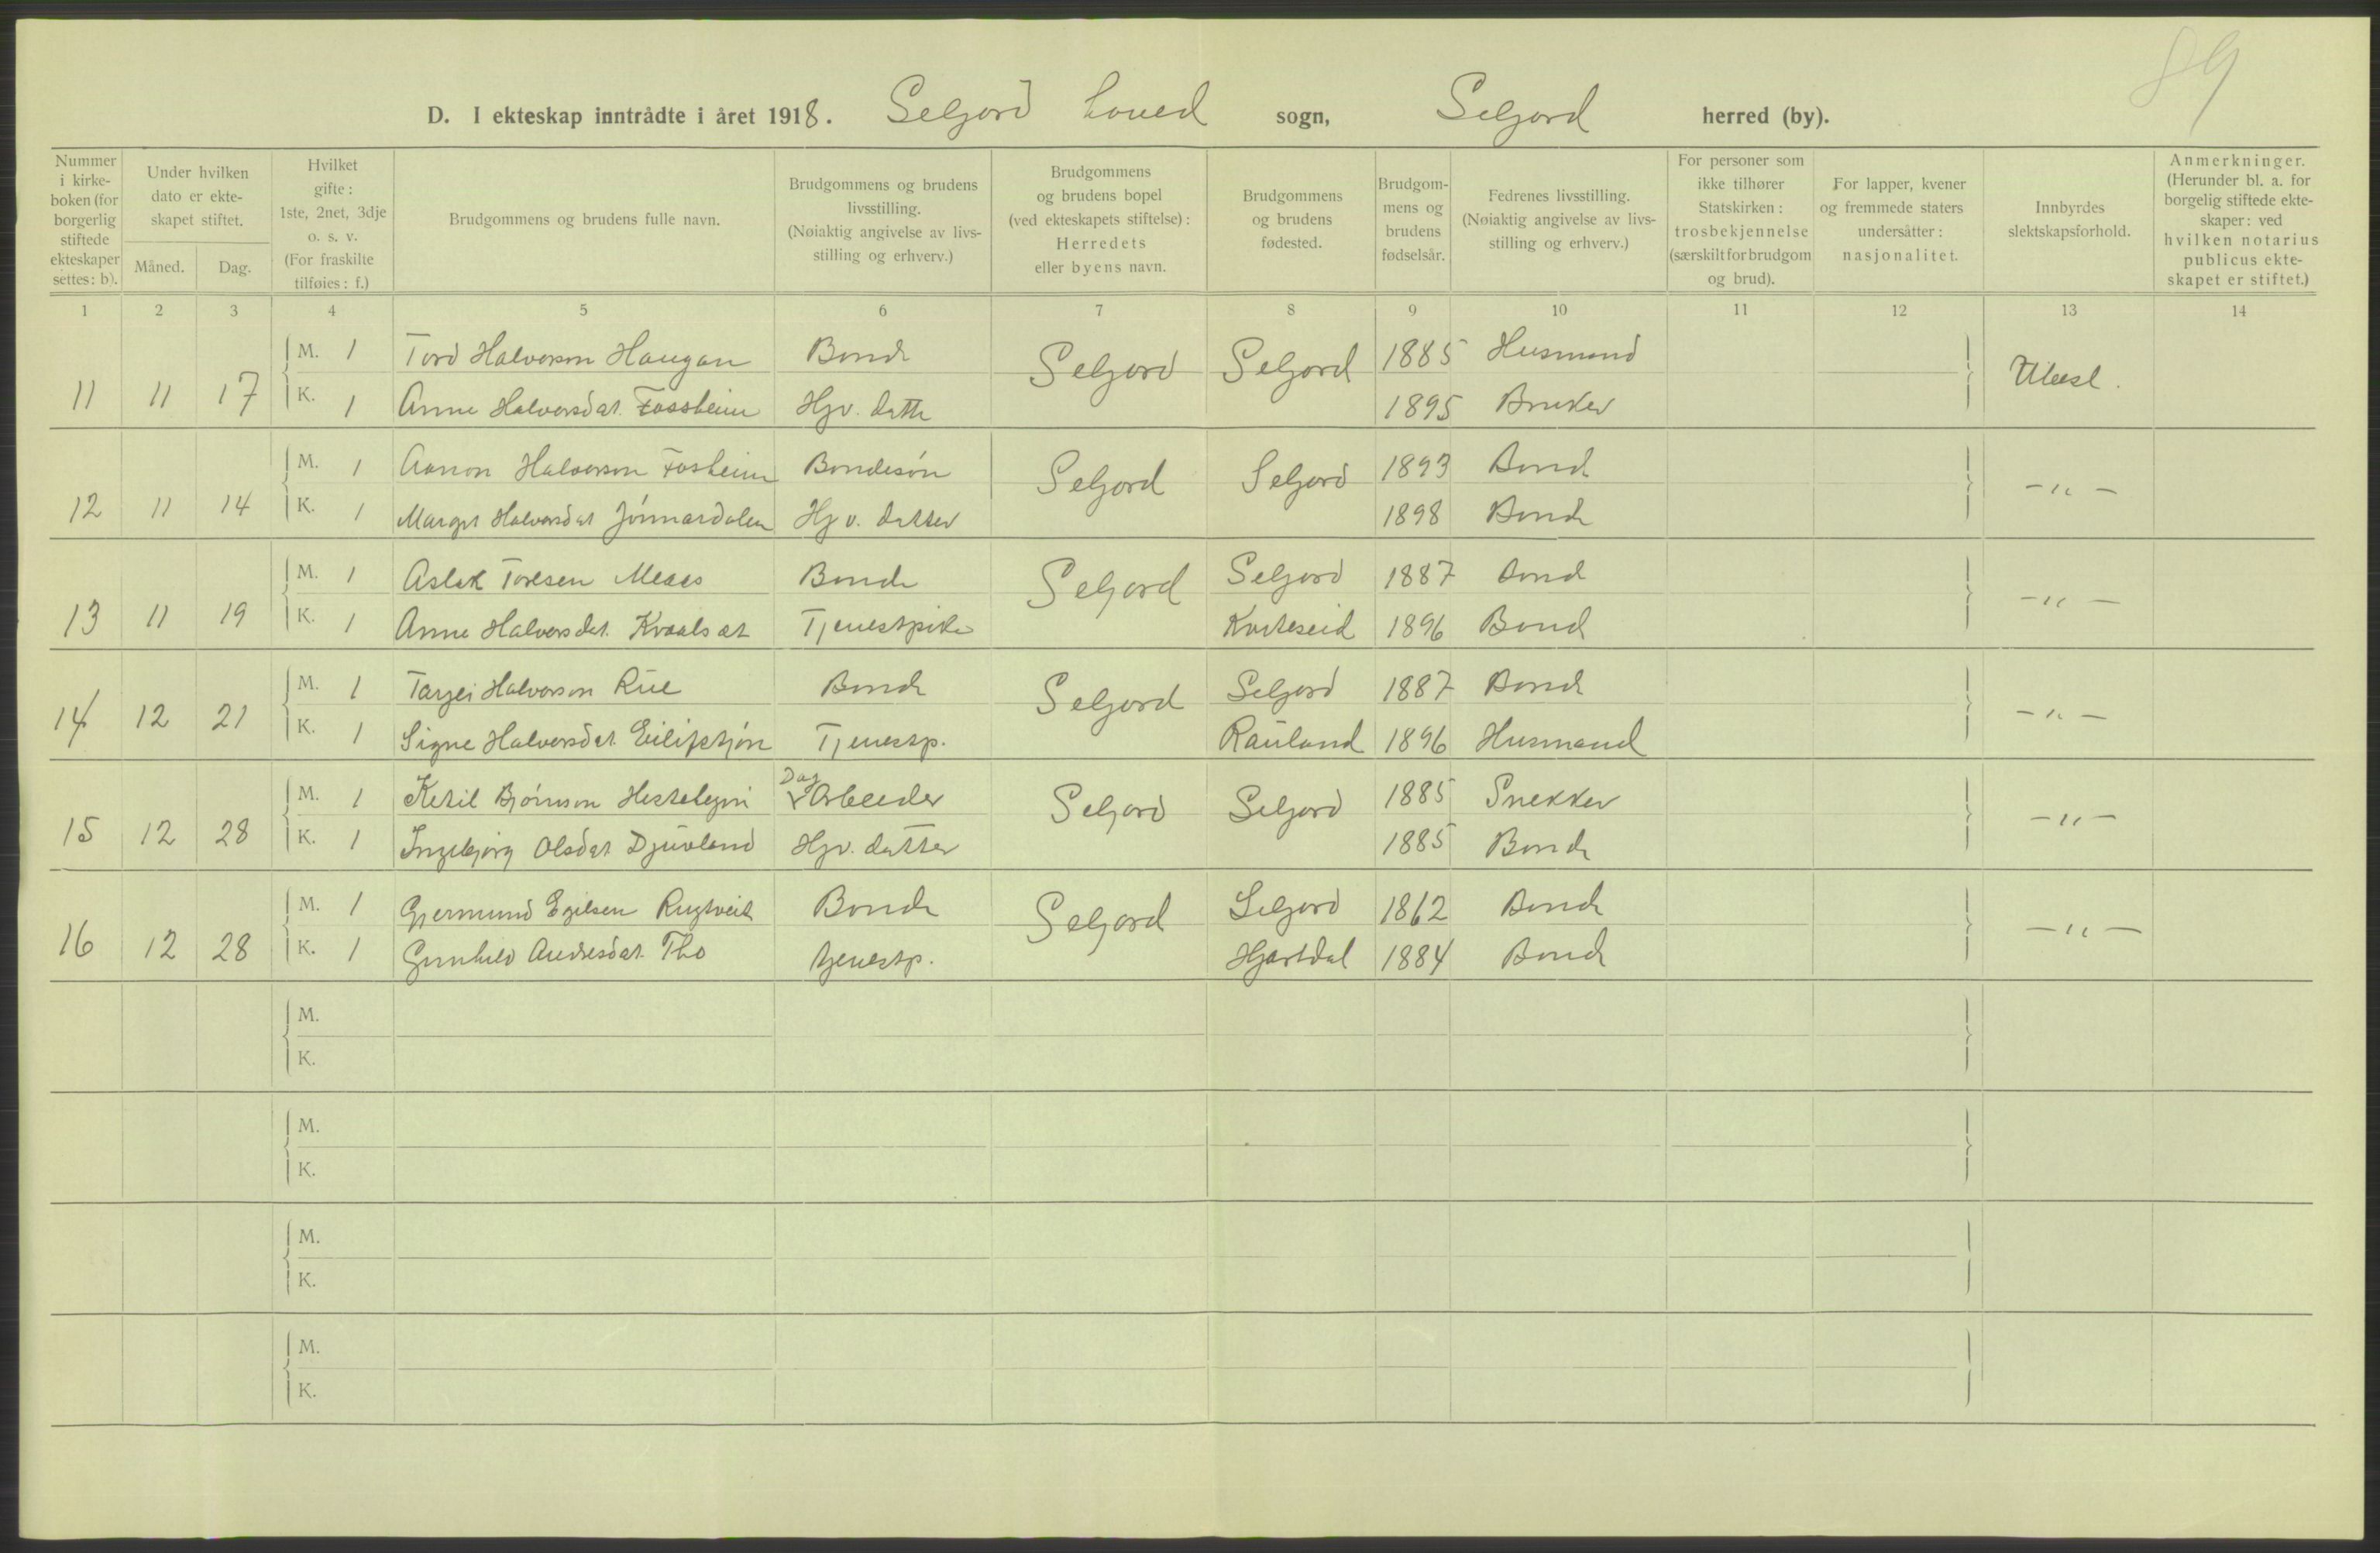 89
D. I ekteskap inntrådte i året 1918. Seljord hoved sogn, Seljord herred (by).
Nummer i kirke-boken (for borgerlig stiftede ekteskaper settes: b).
Under hvilken dato er ekte-skapet stiftet.
Måned. Dag.
Hvilket gifte: 1ste, 2net, 3dje o. s. v. (For fraskilte tilføies: f.)
Brudgommens og brudens fulle navn.
Brudgommens og brudens livsstilling. (Nøiaktig angivelse av livs-stilling og erhverv.)
Brudgommens og brudens bopel (ved ekteskapets stiftelse): Herredets eller byens navn.
Brudgommens og brudens fødested.
Brudgom-mens og brudens fødselsår.
Fedrenes livsstilling. (Nøiaktig angivelse av livs-stilling og erhverv.)
For personer som ikke tilhører Statskirken: trosbekjennelse (særskilt for brudgom og brud).
For lapper, kvener og fremmede staters undersåtter: nasjonalitet.
Innbyrdes slektskapsforhold.
Anmerkninger. (Herunder bl. a. for borgelig stiftede ekte-skaper: ved hvilken notarius publicus ekte-skapet er stiftet.)
1 2 3 4 5 6 7 8 9 10 11 12 13 14
11 11 17 M. 1 Tord Halvorson Haugan Bonde Seljord Seljord 1885 Husmand Ubesl.
K. 1 Anne Halvorsdat. Fossheim Hjv. datte 1895 Bruker
12 11 14 M. 1 Aanon Halvorson Fosheim Bondesøn Seljord Seljord 1893 Bond -"-
K. 1 Margit Halvorsdat Jónnardalen Hjv. datter 1898 Bonde
13 11 19 M. 1 Aslak Toresen Meaas Bonde Seljord Seljord 1887 Bond -"-
K. 1 Anne Halvorsdat. Kvaalsat Tjenestpike Kviteseid 1896 Bond
14 12 21 M. 1 Tarjei Halvorson Rue Bonde Seljord Seljord 1887 Bonde -"-
K. 1 Signe Halvorsdat. Eilifstjøn Tjenestp. Rauland 1896 Husmand
15 12 28 M. 1 Ketil Bjørnson Dag Arbeider Seljord Seljord 1885 Snekker -"-
K. 1 Ingebjørg Olsdat. Djuvland Hjv. datter 1885 Bonde
16 12 28 M. 1 Gjermund Egilsen Rugtveit Bonde Seljord Seljord 1862 Bonde -"-
K. 1 Gunhild Andresdat. Tho tjenestp. Hjartdal 1884 Bonde
M.
K.
M.
K.
M.
K.
M.
K.